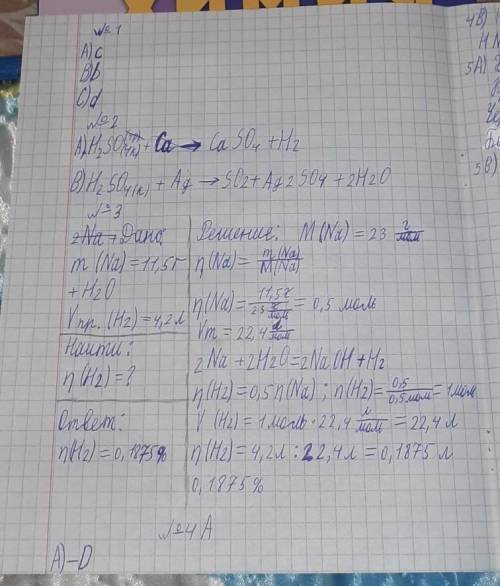 №1
A) c
B) b
C) d
№2
A) H2SO4 + Ca → CaSO4 + H2
B) H2SO4(к) + Ag → SO2 + Ag2SO4 + 2H2O
№3
Дано:
m(Na) = 11,5г
+ H2O
Vпр.(H2) = 4,2л
Найти:
η(H2) = ?
Ответ:
η(H2) = 0,1875%
Решение: M(Na) = 23 г/моль
η(Na) = m(Na)/M(Na)
η(Na) = 11,5г/23 г/моль = 0,5 моль
Vm = 22,4 л/моль
2Na + 2H2O = 2NaOH + H2
η(H2) = 0,5η(Na); η(H2) = 0,5/0,5моль = 1моль
V(H2) = 1моль · 22,4 л/моль = 22,4 л
η(H2) = 4,2л : 22,4л = 0,1875 л
0,1875%
№4 A
A) – D
4B)
HN
5A)
5B)